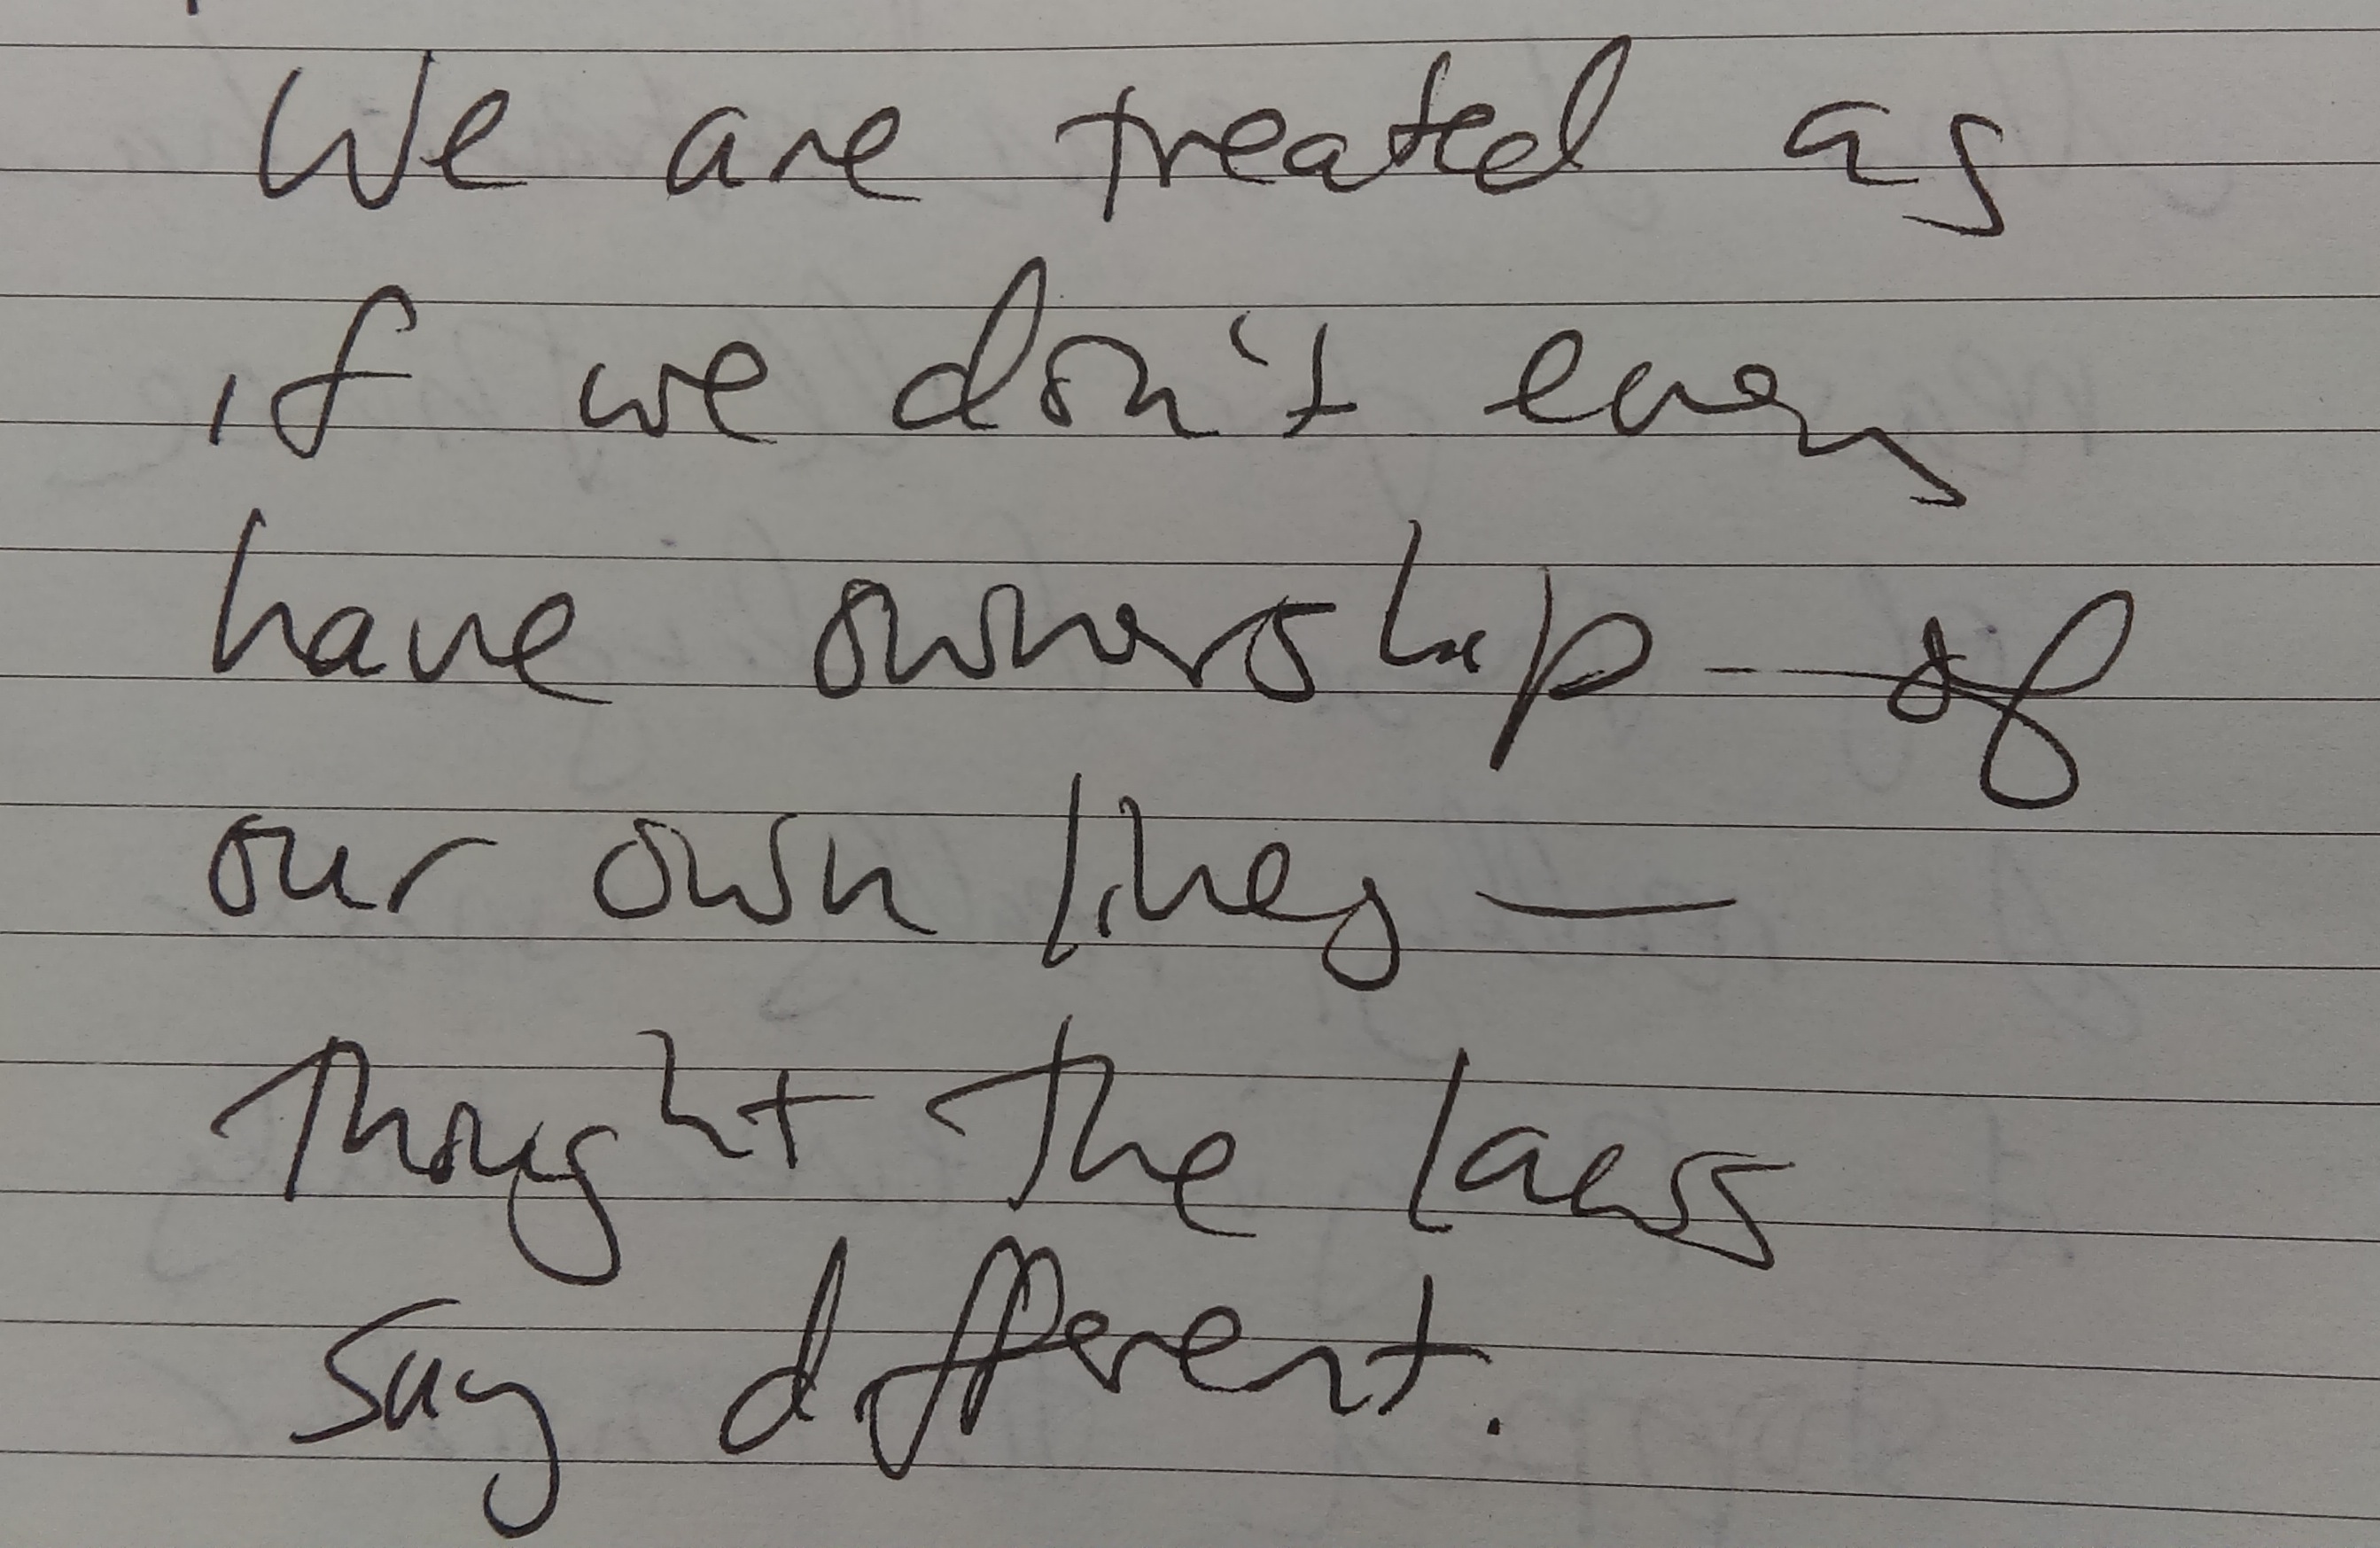 We are treated as
if we don't even
have ownership — of
our own lives —
thought the laws
say different.